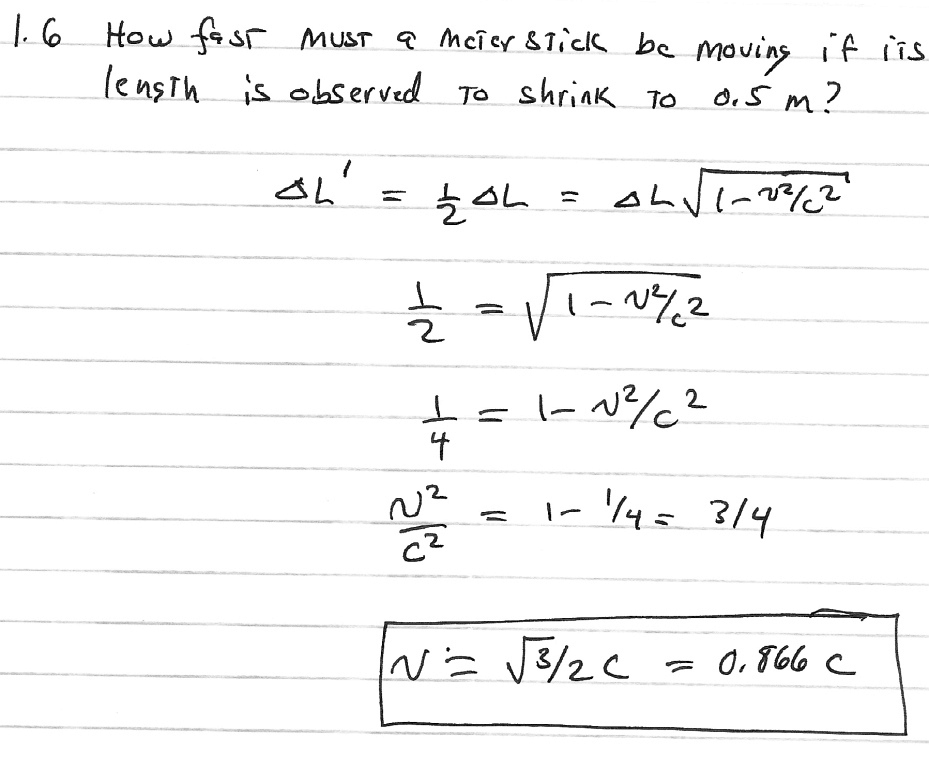 1.6 How fast must a meter stick be moving if its
length is observed to shrink to 0.5 m?
ΔL' = 1/2 ΔL = ΔL√(1-v²/c²)
1/2 = √(1-v²/c²)
1/4 = 1-v²/c²
v²/c² = 1-1/4 = 3/4
v = √3/2 c = 0.866 c